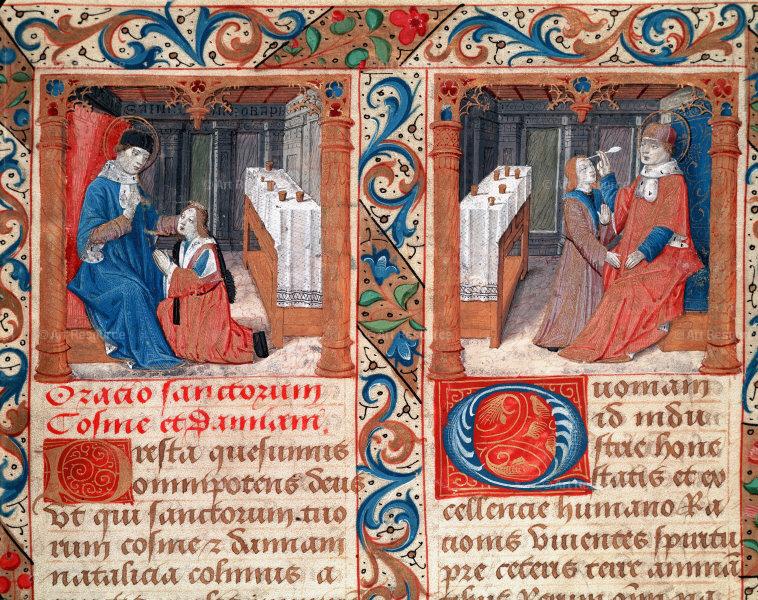 Oracio sanctorum
Cosme et Damiani.
Presta quesumus
omnipotens deus
Vt qui sanctorum tuo
rum cosme z damiani
natalicia colimus a
Quoniam
id indu
strie hone
statis et ex
cellencie humano Ra
cionis viventes spiritu
pre ceteris terre animā
© Art Resource